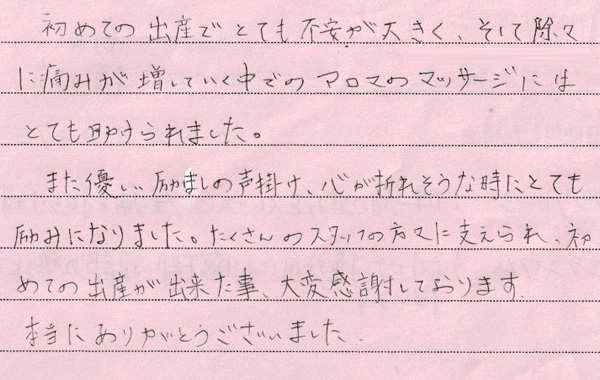 初めての出産でとても不安が大きく、そして除々
に痛みが増していく中でのアロマのマッサージには
とても助けられました。
また優しい励ましの声掛け、心が折れそうな時にとても
励みになりました。たくさんのスタッフの方々に支えられ、初
めての出産が出来た事、大変感謝しております.
本当にありがとうございました.